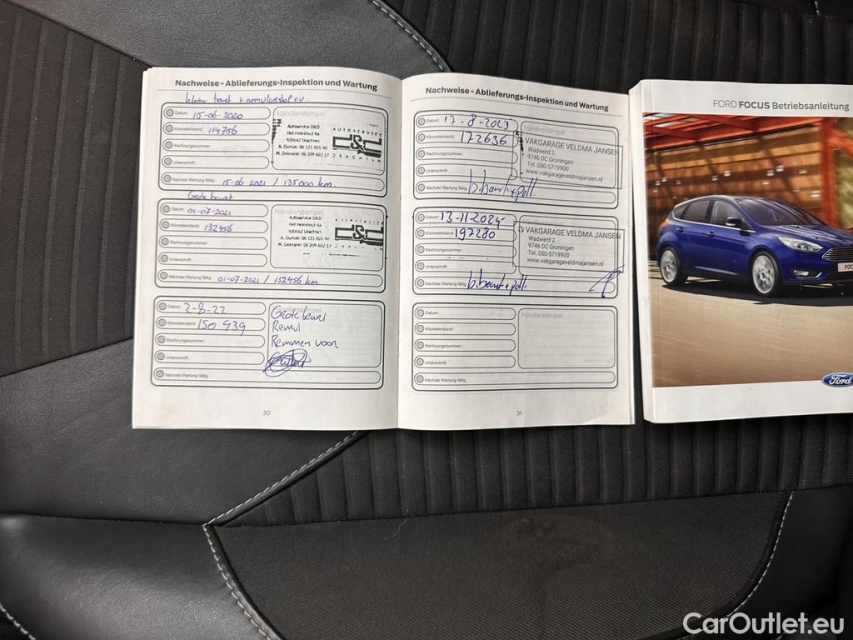 Nachweise - Ablieferungs-Inspektion und Wartung
kleine beurt +
Datum: 15-06-2020
Kilometerstand: 114756
Rechnungsnummer:
Unterschrift:
Nächste Wartung fällig: 15-06-2021 / 135000 km.
Händlerstempel
Autoservice D&G
Het Helmhout 4a
9206AZ Drachten
AUTOSERVICE
DRACHTEN
Grote beurt
Datum: 01-07-2021
Kilometerstand: 132456
Rechnungsnummer:
Unterschrift:
Nächste Wartung fällig: 01-07-2021 / 152456 km
Händlerstempel
Autoservice D&G
Het Helmhout 4a
9206AZ Drachten
Datum: 2-8-22
Kilometerstand: 150 939
Rechnungsnummer:
Unterschrift:
Nächste Wartung fällig:
Grote beurt
Remmen voor
30
Nachweise - Ablieferungs-Inspektion und Wartung
Datum: 17-8-2023
Kilometerstand: 172636
Rechnungsnummer:
Unterschrift:
Nächste Wartung fällig: b.beurt + poll.
VAKGARAGE VELDMA JANSEN
Wadwerd 2
9746 DC Groningen
Tel. 050-5719900
www.vakgarageveldmajansen.nl
Datum: 13-11-2024
Kilometerstand: 197280
Rechnungsnummer:
Unterschrift:
Nächste Wartung fällig: b.beurt + poll.
VAKGARAGE VELDMA JANSEN
Wadwerd 2
9746 DC Groningen
Tel. 050-5719900
www.vakgarageveldmajansen.nl
Datum:
Kilometerstand:
Rechnungsnummer:
Unterschrift:
Nächste Wartung fällig:
Händlerstempel
31
FORD FOCUS Betriebsanleitung
Ford
CarOutlet.eu